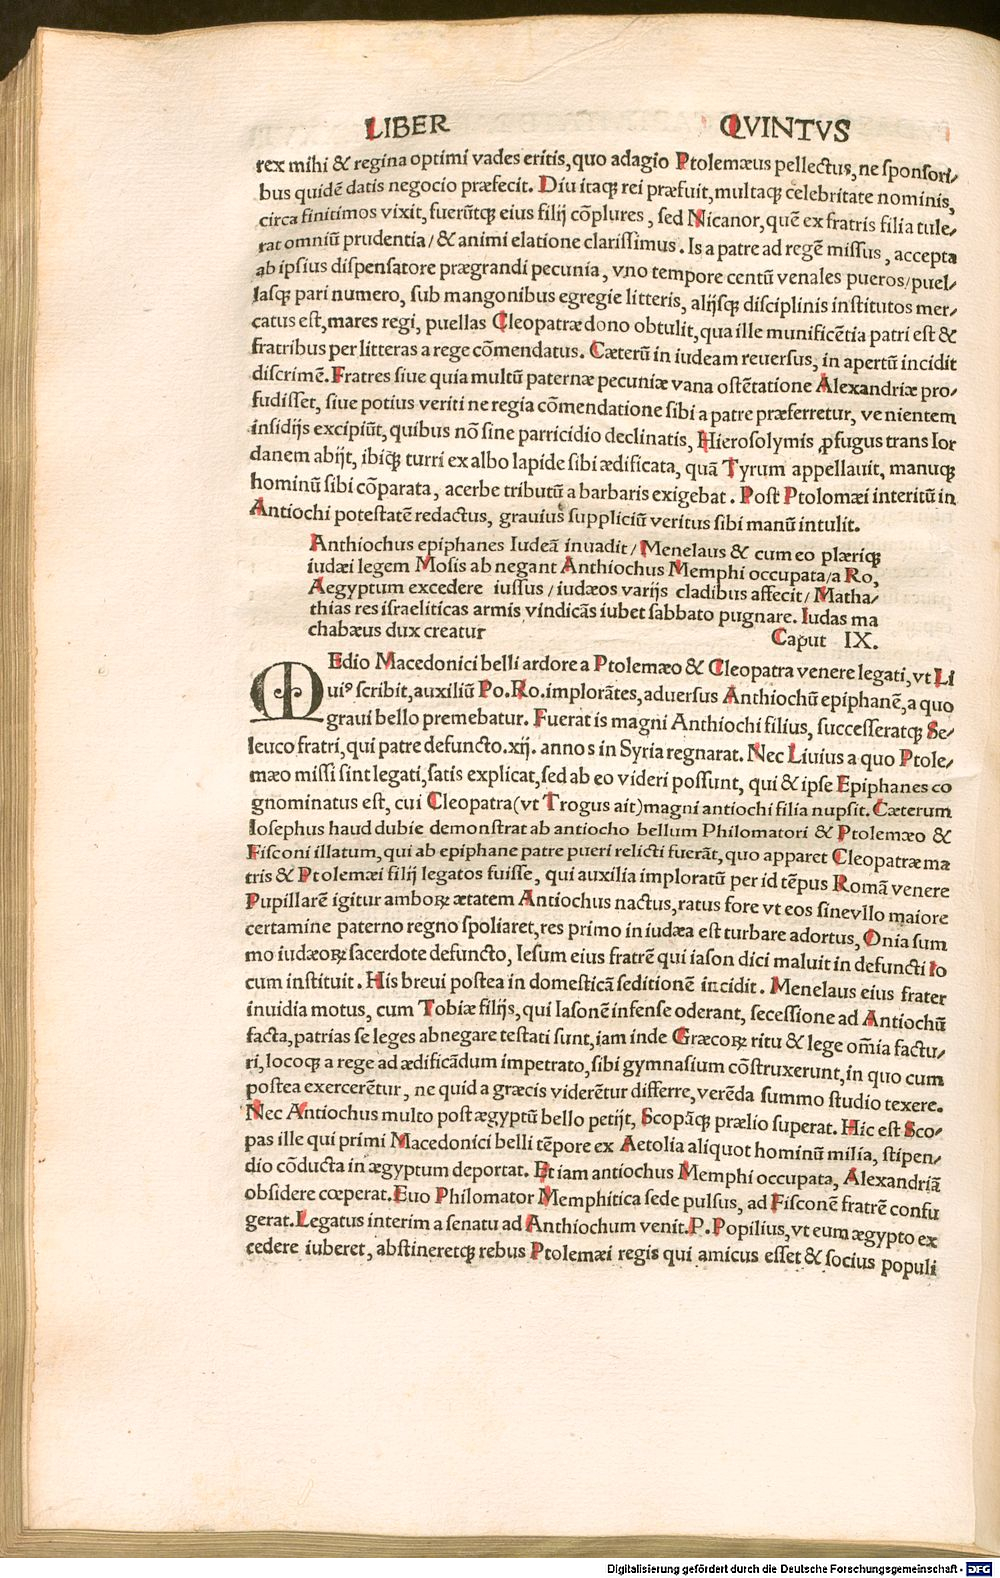 LIBER QVINTVS
rex mihi & regina optimi vades eritis, quo adagio Ptolemæus pellectus, ne sponsori/
bus quidẽ datis negocio præfecit. Diu itaqꝫ rei præfuit, multaqꝫ celebritate nominis,
circa finitimos vixit, fuerũtqꝫ eius filij cõplures, sed Nicanor, quẽ ex fratris filia tule/
rat omniũ prudentia/ & animi elatione clarissimus. Is a patre ad regẽ missus, accepta
ab ipsius dispensatore prægrandi pecunia, vno tempore centũ venales pueros/puel/
lasqꝫ pari numero, sub mangonibus egregie litteris, alijsqꝫ disciplinis institutos mer/
catus est, mares regi, puellas Cleopatræ dono obtulit, qua ille munificẽtia patri est &
fratribus per litteras a rege cõmendatus. Cæterũ in iudeam reuersus, in apertũ incidit
discrimẽ. Fratres siue quia multũ paternæ pecuniæ vana ostẽtatione Alexandriæ pro/
fudisset, siue potius veriti ne regia cõmendatione sibi a patre præferretur, ve nientem
insidijs excipiũt, quibus nõ sine parricidio declinatis, Hierosolymis ꝓfugus trans Ior
danem abijt, ibiqꝫ turri ex albo lapide sibi ædificata, quã Tyrum appellauit, manuqꝫ
hominũ sibi cõparata, acerbe tributũ a barbaris exigebat. Post Ptolomæi interitũ in
Antiochi potestatẽ redactus, grauius suppliciũ veritus sibi manũ intulit.
Anthiochus epiphanes Iudeã inuadit/ Menelaus & cum eo plæriqꝫ
iudæi legem Mosis ab negant Anthiochus Memphi occupata/a Ro,
Aegyptum excedere iussus / iudæos varijs cladibus affecit/ Matha/
thias res israeliticas armis vindicãs iubet sabbato pugnare. Iudas ma
chabæus dux creatur Caput IX.
MEdio Macedonici belli ardore a Ptolemæo & Cleopatra venere legati, vt Li
uiꝰ scribit, auxiliũ Po. Ro. implorãtes, aduersus Anthiochũ epiphanẽ, a quo
graui bello premebatur. Fuerat is magni Anthiochi filius, successeratqꝫ Se/
leuco fratri, qui patre defuncto .xij. anno s in Syria regnarat. Nec Liuius a quo Ptole/
mæo missi sint legati, satis explicat, sed ab eo videri possunt, qui & ipse Epiphanes co
gnominatus est, cui Cleopatra (vt Trogus ait) magni antiochi filia nupsit. Cæterum
Iosephus haud dubie demonstrat ab antiocho bellum Philomatori & Ptolemæo &
Fisconi illatum, qui ab epiphane patre pueri relicti fuerãt, quo apparet Cleopatræ ma
tris & Ptolemæi filij legatos fuisse, qui auxilia imploratũ per id tẽpus Romã venere
Pupillarẽ igitur amboꝝ ætatem Antiochus nactus, ratus fore vt eos sine vllo maiore
certamine paterno regno spoliaret, res primo in iudæa est turbare adortus, Onia sum
mo iudæoꝝ sacerdote defuncto, Iesum eius fratrẽ qui iason dici maluit in defuncti lo
cum instituit. His breui postea in domesticã seditionẽ incidit. Menelaus eius frater
inuidia motus, cum Tobiæ filijs, qui Iasonẽ infense oderant, secessione ad Antiochũ
facta, patrias se leges abnegare testati sunt, iam inde Græcoꝝ ritu & lege om̃ia factu/
ri, locoqꝫ a rege ad ædificãdum impetrato, sibi gymnasium cõstruxerunt, in quo cum
postea exercerẽtur, ne quid a græcis viderẽtur differre, verẽda summo studio texere.
Nec Antiochus multo post ægyptũ bello petijt, Scopãqꝫ prælio superat. Hic est Sco/
pas ille qui primi Macedonici belli tẽpore ex Aetolia aliquot hominũ milia, stipen/
dio cõducta in ægyptum deportat. Etiam antiochus Memphi occupata, Alexandriã
obsidere cœperat. Euo Philomator Memphitica sede pulsus, ad Fisconẽ fratrẽ confu
gerat. Legatus interim a senatu ad Anthiochum venit. P. Popilius, vt eum ægypto ex
cedere iuberet, abstineretqꝫ rebus Ptolemæi regis qui amicus esset & socius populi
Digitalisierung gefördert durch die Deutsche Forschungsgemeinschaft - DFG